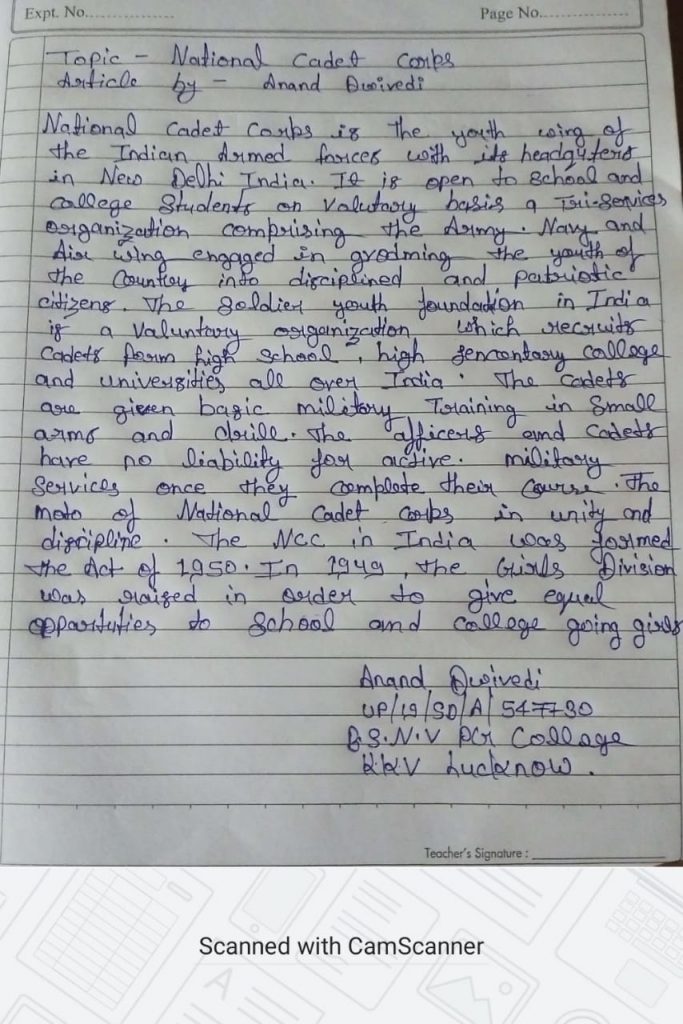 Expt. No.................
Page No.....................
Topic - National Cadet Corps
Article by - Anand Dwivedi
National Cadet Corps is the youth wing of
the Indian Armed forces with its headquters
in New Delhi India. It is open to School and
college Students on Valutary basis a Tri-Services
organization comprising the Army. Navy and
Air wing engaged in grodming the youth of
the Country into disciplined and patriotic
citizens. The Soldier youth foundation in India
is a Valuntary organization which recruits
Cadets form high school, high sencontary college
and universities all over India. The Cadets
are given basic military Training in Small
arms and drill. The officers and Cadets
have no liability for active. military
Services once they complete their Course. The
moto of National Cadet Corps in unity and
discipline. The NCC in India was formed
the Act of 1950. In 1949, the Girls Division
was raised in order to give equal
oppartuties to School and College going girls
Anand Dwivedi
UP/19/SD/A/547730
B.S.N.V PG College
KKV Lucknow.
Teacher's Signature :
Scanned with CamScanner